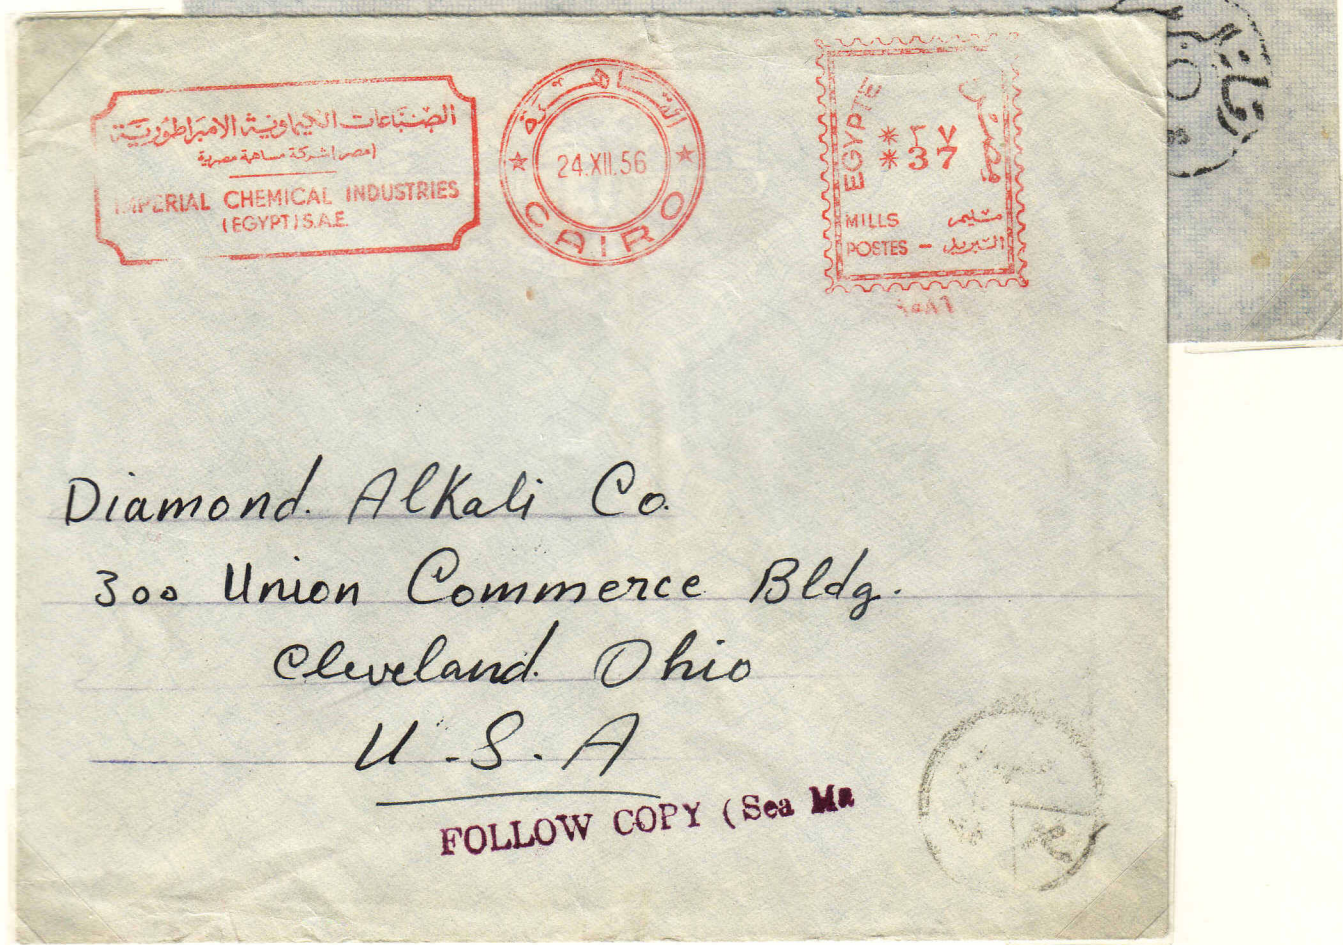 الصناعات الكيماوية الامبراطورية
(مصر) شركة مساهمة مصرية
IMPERIAL CHEMICAL INDUSTRIES
(EGYPT) S.A.E.
القاهرة
24.XII.56
CAIRO
EGYPTE
مصر
*٣٧
*37
MILLS مليم
POSTES - البريد
Diamond Alkali Co.
300 Union Commerce Bldg.
Cleveland Ohio
U.S.A
FOLLOW COPY (Sea Ma